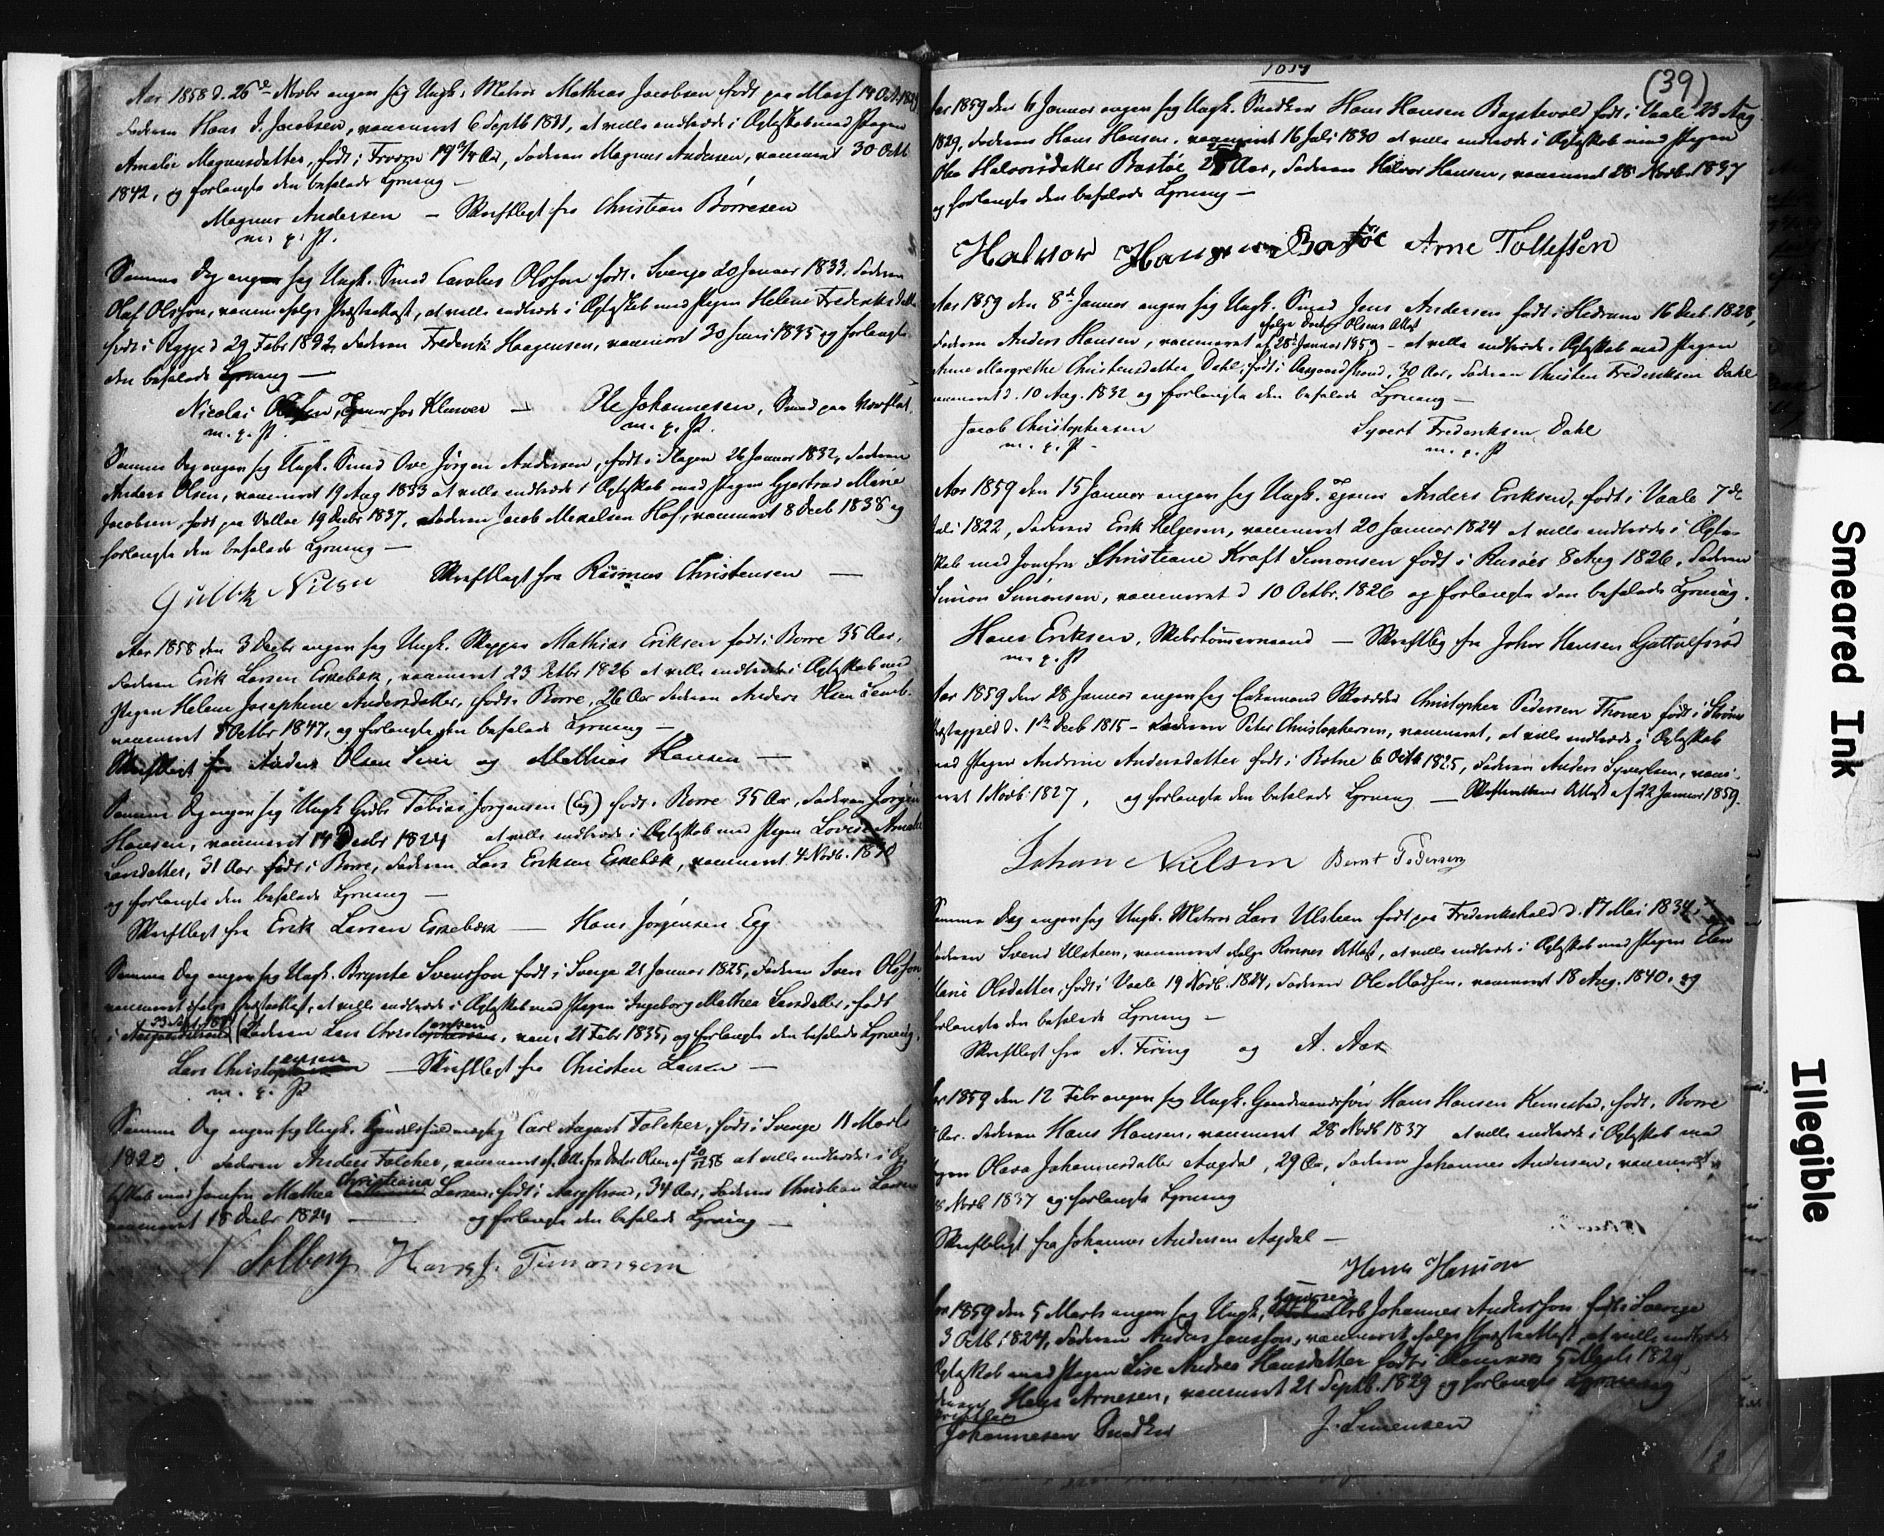 Aar 1858 d. 26de Novbr angav sig Ungk. Matros Mathias Jacobsen født paa Moss 14 Oct.
Faderen Hans J. Jacobsen, vaccineret 6 Septb 1841, at ville indtræde i Ægteskab med Pigen
Amalie Magnusdatter, født i Aar, Faderen Magnus Andersen, vaccineret 30 Octb
1842, og forlangte den befalede Lysning —
Magnus Andersen — Skriftligt fra Christian Børresen
m. p. P.
Samme Dag angav sig Ungk. Smed Carolus Olsson født i Sverige 20 Januar 1833. Faderen
Olof Olsson, vaccineret ifølge Præsteattest, at ville indtræde i Ægteskab med Pigen Helene Frederiksdatter
født i Rygge d 29 Febr 1832, Faderen Frederik Haagensen, vaccineret 30 Juni 1835 og forlangte
den befalede Lysning —
Nicolai — Ole Johannesen, Smed paa
m. p. P. m. p. P.
Samme Dag angav sig Ungk. Smed Ove Jørgen Andersen, født i Slagen 26 Januar 1832, Faderen
Anders Olsen, vaccineret 19 Aug 1833 at ville indtræde i Ægteskab med Pigen Gjertrud Marie
Jacobsen, født paa Valløe 19 Decbr 1837, Faderen Jacob Mikalsen Hof, vaccineret 8 Decb 1838 og
forlangte den befalede Lysning —
Gulbk Nilsen Skriftligt fra Rasmus Christensen —
Aar 1858 den 3 Decbr angav sig Ungk. Skipper Mathias Eriksen født i Borre 35 Aar,
Faderen Erik Larsen Eskebæk, vaccineret 23 Octbr 1826 at ville indtræde i Ægteskab med
Pigen Helene Josephine Andersdatter, født i Borre, 26 Aar Faderen Anders
vaccineret 8 Octbr 1847, og forlangte den befalede Lysning —
Skriftligt fra Anders Olsen og Mathias Hansen —
Samme Dag angav sig Ungk Tobias Jørgensen (Eg) født i Borre 35 Aar, Faderen Jørgen
Hansen, vaccineret 14 Decbr 1824 at ville indtræde i Ægteskab med Pigen Lovise Amalie
Larsdatter, 31 Aar født i Borre, Faderen Lars Eriksen Eskebæk, vaccineret 4 Novb. 1830
og forlangte den befalede Lysning —
Skriftligt fra Erik Larsen Eskebæk — Hans Jørgensen Eg
Samme Dag angav sig Ungk. Brynte Svensson født i Sverige 21 Januar 1825, Faderen Sven Olsson
vaccineret ifølge Præsteattest, at ville indtræde i Ægteskab med Pigen Ingeborg Mathea Larsdatter, født
i Aasgaardstrand Faderen Lars Christensen, vacc. 21 Febr 1835, og forlangte den befalede Lysning.
Lars Christensen — Skriftligt fra Christen Larsen —
m. p. P
Samme Dag angav sig Ungk. Handelsfuldmægtig Carl August Falcker, født i Sverige 11 Marts
1820. Faderen Anders Falcker, vaccineret at ville indtræde i Æg
teskab med Jomfru Mathea Christiana Larsen, født i Aasgstrand, 34 Aar, Faderen Christian Larsen
vaccineret 15 Decbr 1824 — og forlangte den befalede Lysning —
N Solberg. Hans J. Simonsen
(39)
Aar 1859 den 6 Januar angav sig Ungk. Snedker Hans Hansen født i Vaale 23 Aug
1829, Faderen Hans Hansen, vaccineret 16 Juli 1830 at ville indtræde i Ægteskab med Pigen
Olea Halvorsdatter Bastøe Aar, Faderen Halvor Hansen, vaccineret 28 Novb. 1837
og forlangte den befalede Lysning —
Halvor Hansen Bastøe Arne Tollefsen
Aar 1859 den 8de Januar angav sig Ungk. Smed Jens Andersen født i Hedrum 16 Decb. 1828,
ifølge Doctor Olsens Attest
Faderen Anders Hansen, vaccineret af 28 Januar 1859 — at ville indtræde i Ægteskab med Pigen
Anne Margrethe Christensdatter Dahl, født i Aasgaardstrand, 30 Aar, Faderen Christen Frederiksen Dahl
vaccineret d. 10 Aug. 1832 og forlangte den befalede Lysning —
Jacob Christophersen Syvert Frederiksen Dahl
m. p. P. m. p. P
Aar 1859 den 15 Januar angav sig Ungk. Anders Eriksen, født i Vaale 7de
Juli 1822, Faderen Erik Helgesen, vaccineret 20 Januar 1824 at ville indtræde i Ægte
skab med Jomfru Christiane Kraft Simonsen født i Risøer 8 Aug 1826, Faderen
Simon Simonsen, vaccineret d 10 Octbr. 1826 og forlangte den befalede Lysning.
Hans Eriksen, Skibstømmermand — Skriftlig fra Johan Hansen
m. p. P
Aar 1859 den 28 Januar angav sig Enkemand Skrædder Christopher Pedersen født i
Præstegjeld d. 1ste Decb 1815 — Faderen Peter Christophersen, vaccineret, at ville indtræde i Ægteskab
med Pigen Andrine Andersdatter født i Botne 6 Octb 1825, Faderen Anders Syvertsen, vacci-
neret 1 Novb. 1827, og forlangte den befalede Lysning — Attest af 22 Januar 1859.
Johan Nielsen Bernt Pedersen
Samme Dag angav sig Ungk. Matros Lars Ulsteen født paa Frederikshald d. 17 Mai 1834,
Faderen Svend Ulsteen, vaccineret ifølge Attest, at ville indtræde i Ægteskab med Pigen Elen
Marie Olsdatter, født i Vaale 19 Novb. 1824, Faderen Ole Madsen, vaccineret 18 Aug. 1840, og
forlangte den befalede Lysning —
Skriftligt fra A. Firing og A. Aas
Aar 1859 den 12 Febr angav sig Ungk. Gaardmandssøn Hans Hansen født i Borre
Aar. Faderen Hans Hansen, vaccineret 28 Novb 1837 at ville indtræde i Ægteskab med
Pigen Olava Johannesdatter Aagdal, 29 Aar, Faderen Johannes Andersen, vaccineret
28 Novb 1837 og forlangte Lysning
Skriftligt fra Johannes Andersen Aagdal —
Hans Hansen
Aar 1859 den 5 Marts angav sig Ungk. Johannes Andersson født i Sverige
3 Octb 1824, Faderen Anders Jonsson, vaccineret ifølge Præsteattest, at ville indtræde
Ægteskab med Pigen Lise Andrea Hansdatter født i 5 1829,
Faderen Hans Arnesen, vaccineret 21 Septb. 1829 og forlangte Lysning
Johannesen Snedker J. Simensen
Smeared Ink
Illegible